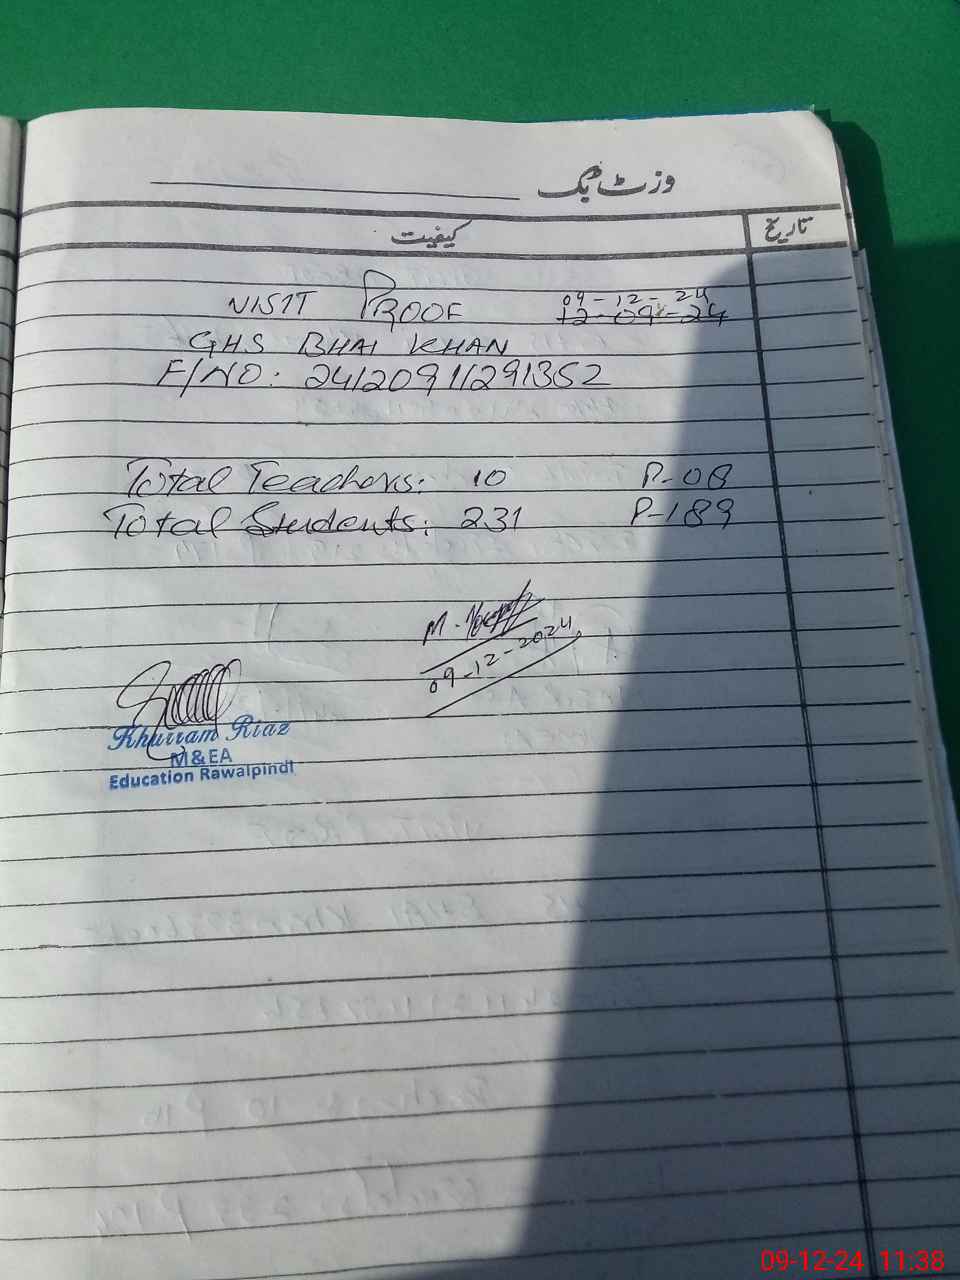 وزٹ بک
کیفیت
تاریخ
VISIT PROOF
09-12-24
12-09-24
GHS BHAI KHAN
F/NO: 24120911291352
Total Teachers: 10 P-08
Total Students: 231 P-189
M.
09-12-2024
Khurram Riaz
M&EA
Education Rawalpindi
09-12-24 11:38